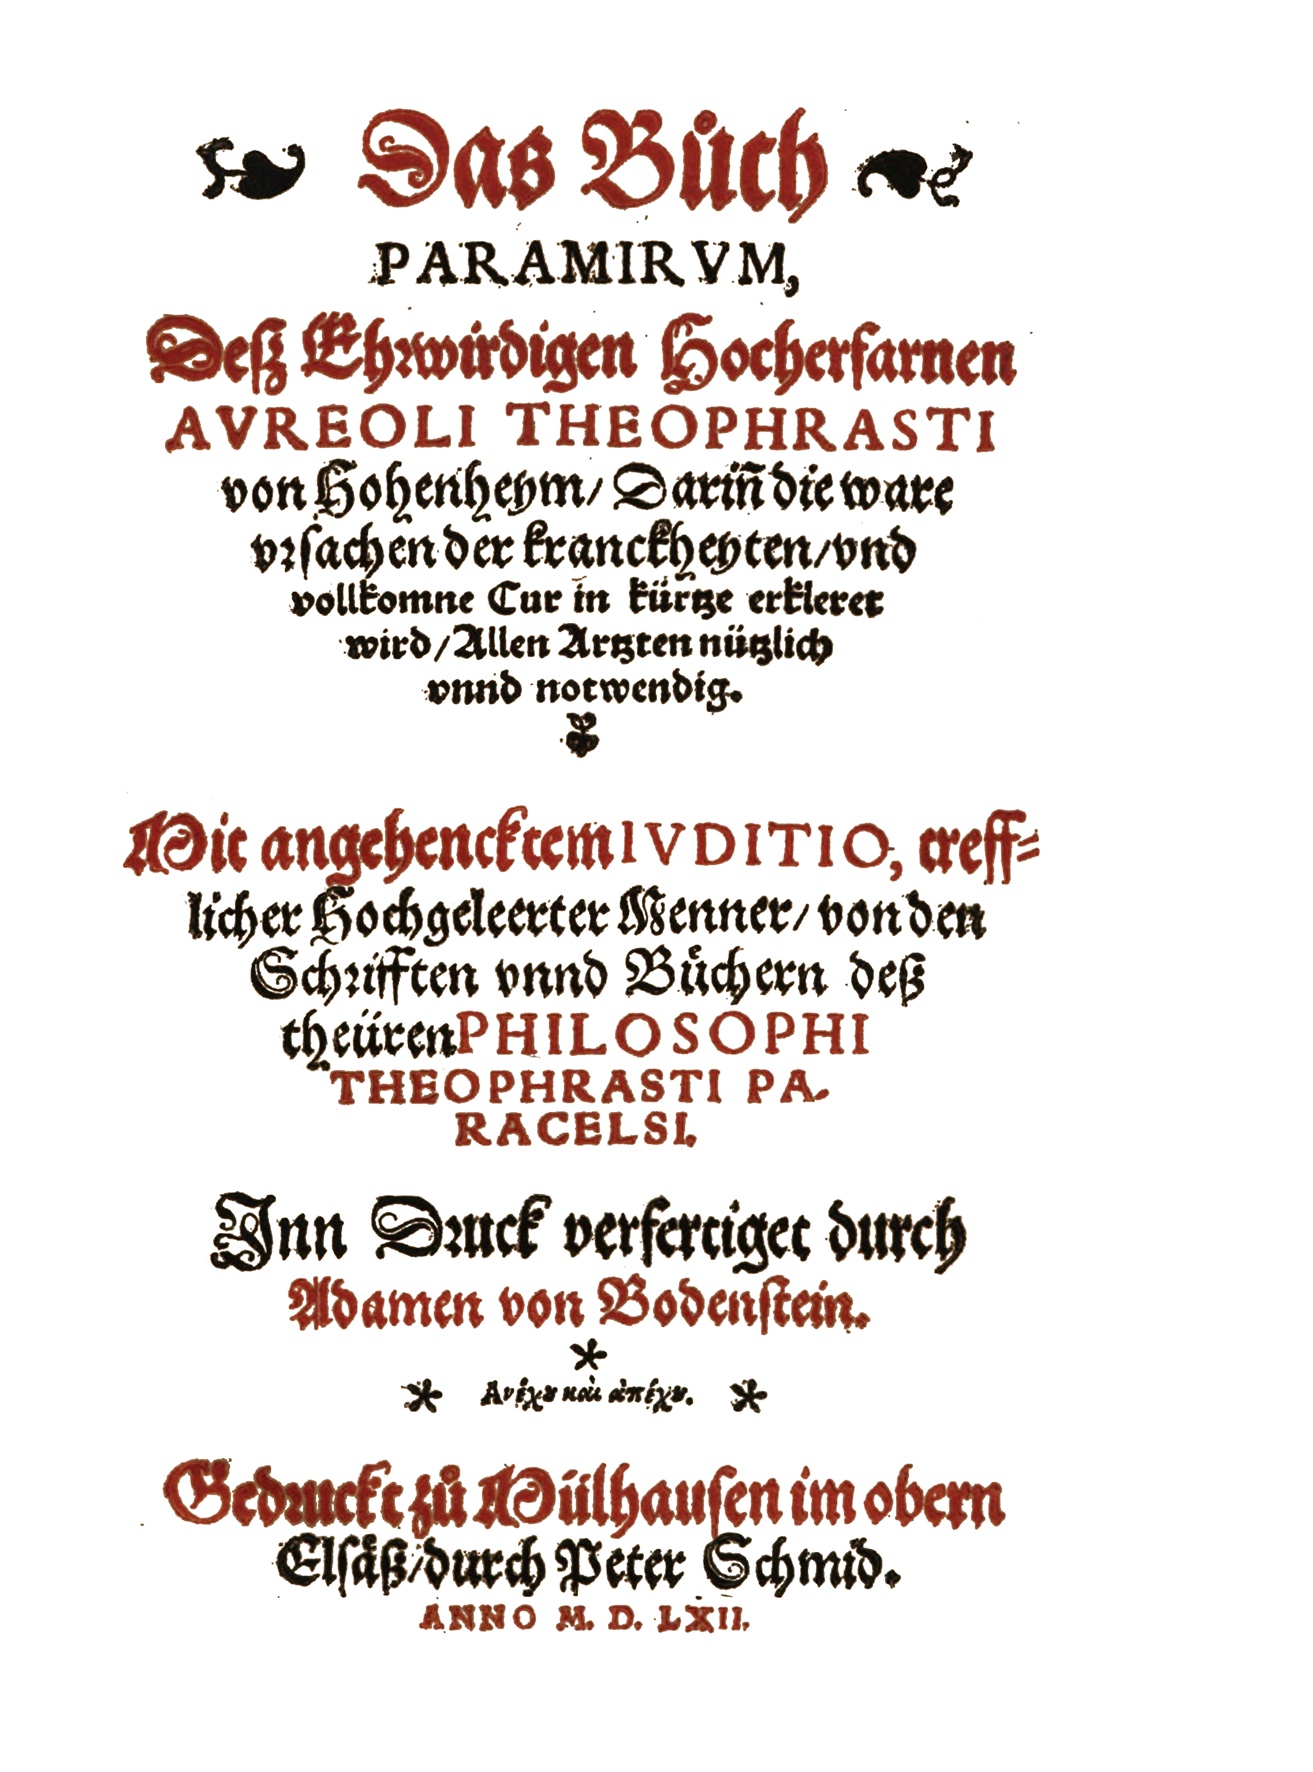 Das Bůch
PARAMIRVM,
Deß Ehrwirdigen Hocherfarnen
AVREOLI THEOPHRASTI
von Hohenheym/ Dariñ die ware
vrsachen der kranckheyten/ vnd
vollkomne Cur in kürtze erkleret
wird/ Allen Artzten nützlich
vnnd notwendig.
Mit angehencktem IVDITIO, treff⸗
licher Hochgeleerter Menner/ von den
Schrifften vnnd Bůchern deß
theüren PHILOSOPHI
THEOPHRASTI PA-
RACELSI.
Inn Druck verfertiget durch
Adamen von Bodenstein.
*
* Ανέχου καὶ ἀπέχου. *
Gedruckt zů Mülhausen im obern
Elsåß/ durch Peter Schmid.
ANNO M. D. LXII.